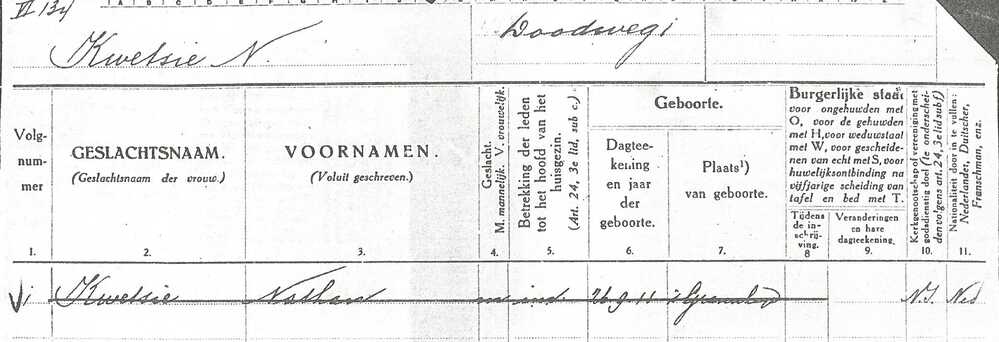 VI 134
Kwetsie N.
Doodweg 1
Volg-
num-
mer
GESLACHTSNAAM.
(Geslachtsnaam der vrouw.)
VOORNAMEN.
(Voluit geschreven.)
Geslacht.
M. mannelijk. V. vrouwelijk.
Betrekking der leden
tot het hoofd van het
huisgezin.
(Art. 24, 3e lid, sub c.)
Geboorte.
Dagtee-
kening
en jaar
der
geboorte.
Plaats¹)
van geboorte.
Burgerlijke staat
voor ongehuwden met
O, voor de gehuwden
met H, voor weduwstaat
met W, voor gescheide-
nen van echt met S, voor
huwelijksontbinding na
vijfjarige scheiding van
tafel en bed met T.
Tijdens
de in-
schrij-
ving.
Veranderingen
en hare
dagteekening.
Kerkgenootschap of vereeniging met
godsdienstig doel (te onderschei-
den volgens art. 24, 3e lid sub f)
Nationaliteit door in te vullen:
Nederlander, Duitscher,
Franschman, enz.
1. 2. 3. 4. 5. 6. 7. 8 9. 10. 11.
Kwetsie Nathan m ind. 26 9 11 N.I. Ned